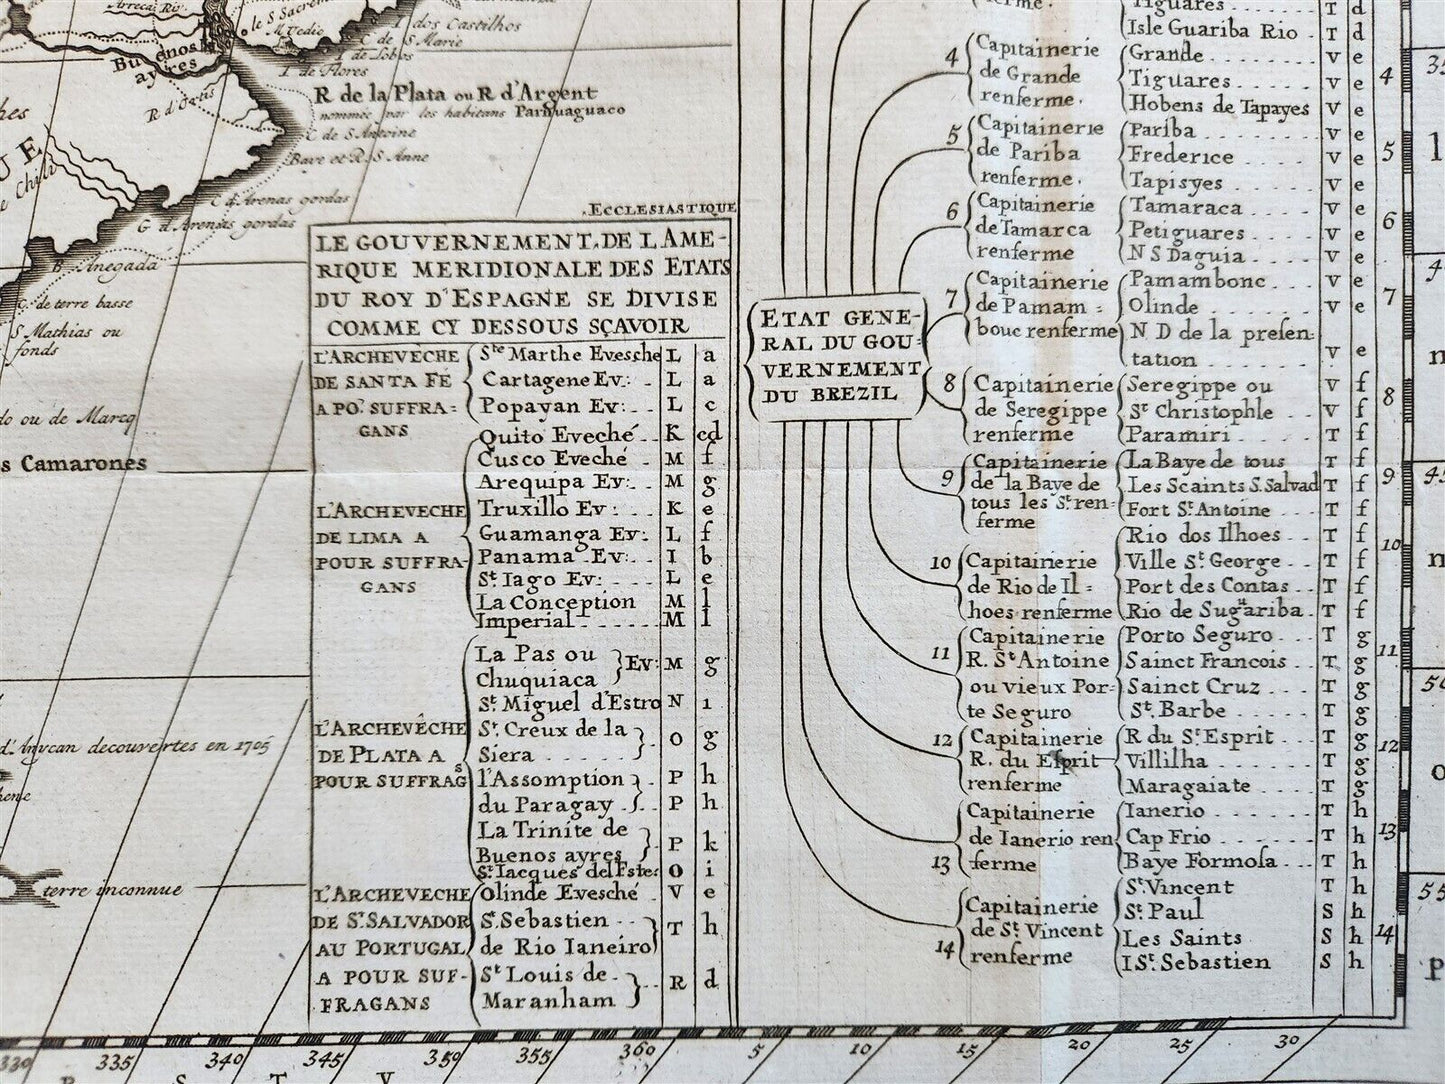 Arrecai Riv.
le S Sacrem
M Vedio
I dos Castilhos
C de S Marie
I de Lobos
I de Flores
Buenos
ayres
R d'Ortis
R de la Plata ou R d'Argent
nommée par les habitans Parnuaguaco
C de S Antoine
Baye et R S Anne
hes
UE
e Chili
C d'Arenas gordas
G d'Arenas gordas
B Anegada
C. de terre basse
S Mathias ou
fonds
do ou de Marcq
s Camarones
d'Anycan decouvertes en 1705
hene
terre inconnue
.ECCLESIASTIQUE
LE GOUVERNEMENT, DE L AME-
RIQUE MERIDIONALE DES ETATS
DU ROY D'ESPAGNE SE DIVISE
COMME CY DESSOUS SÇAVOIR
L'ARCHEVECHE
DE SANTA FÉ
A PO.r SUFFRA=
GANS
Ste Marthe Evesche L a
Cartagene Ev: - L a
Popayan Ev: . . L c
Quito Eveché . . K cd
L'ARCHEVECHE
DE LIMA A
POUR SUFFRA-
GANS
Cusco Eveché . M f
Arequipa Ev: . . M g
Truxillo Ev : . . K e
Guamanga Ev: . L f
Panama Ev: . . I b
St. Iago Ev: . . . . L e
La Conception M l
Imperial . . . . . M l
L'ARCHEVÊCHE
DE PLATA A
POUR SUFFRAGs
La Pas ou
Chuquiaca } Ev: M g
St. Miguel d'Estro N i
St. Creux de la
Siera . . . . . . } . O g
l'Assomption P h
du Paragay . P h
La Trinite de
Buenos ayres } P k
St. Iacques del Este: O i
L'ARCHEVECHE
DE St. SALVADOR
AU PORTUGAL
A POUR SUF-
FRAGANS
Olinde Evesché . V e
St. Sebastien . . .
de Rio Ianeiro } T h
St Louis de -
Maranham } . . R d
ETAT GENE-
RAL DU GOU=
VERNEMENT
DU BREZIL
ferme.
Tiguares . . . . T d
Isle Guariba Rio . T d
4 Capitainerie
de Grande
renferme.
Grande . . . . . V e
Tiguares . . . . . V e
Hobens de Tapayes V e
5 Capitainerie
de Pariba
renferme.
Pariba . . . . . . V e
Frederice . . . . V e
Tapisyes . . . . . V e
6 Capitainerie
de Tamarca
renferme
Tamaraca . . . . V e
Petiguares . . . . V e
N S Daguia . . . . V e
7 Capitainerie
de Pamam =
bouc renferme
Pamambonc . . . V e
Olinde . . . . . . V e
N D de la presen:
tation . . . . . . V e
8 Capitainerie
de Seregippe
renferme
Seregippe ou V f
St Christophle . . V f
Paramiri . . . . . T f
9 Capitainerie
de la Baye de
tous les St. ren=
ferme
La Baye de tous T f
Les Scaints S. Salvad T f
Fort St. Antoine . T f
10 Capitainerie
de Rio de Il=
hoes renferme
Rio dos Ilhoes . . T f
Ville St. George . . T f
Port des Contas . T f
Rio de Suguariba . T f
11 Capitainerie
R. St Antoine
ou vieux Por-
te Seguro
Porto Seguro . . . T g
Sainct Francois . . T g
Sainct Cruz . . . T g
St. Barbe . . . . T g
12 Capitainerie
R. du Esprit
renferme
R du St. Esprit . . T g
Villilha . . . . . T g
Maragaiate . . . . T g
13 Capitainerie
de Ianerio ren
ferme
Ianerio . . . . . . T h
Cap Frio . . . . . T h
Baye Formosa . . . T h
14 Capitainerie
de St. Vincent
renferme
St. Vincent . . . . T h
St. Paul . . . . . S h
Les Saints . . . . S h
I St. Sebastien . . . S h
4
5
6
7
8
9
10
11
12
13
14
35
45
50
55
330 335 340 345 350 355 360 5 10 15 20 25 30